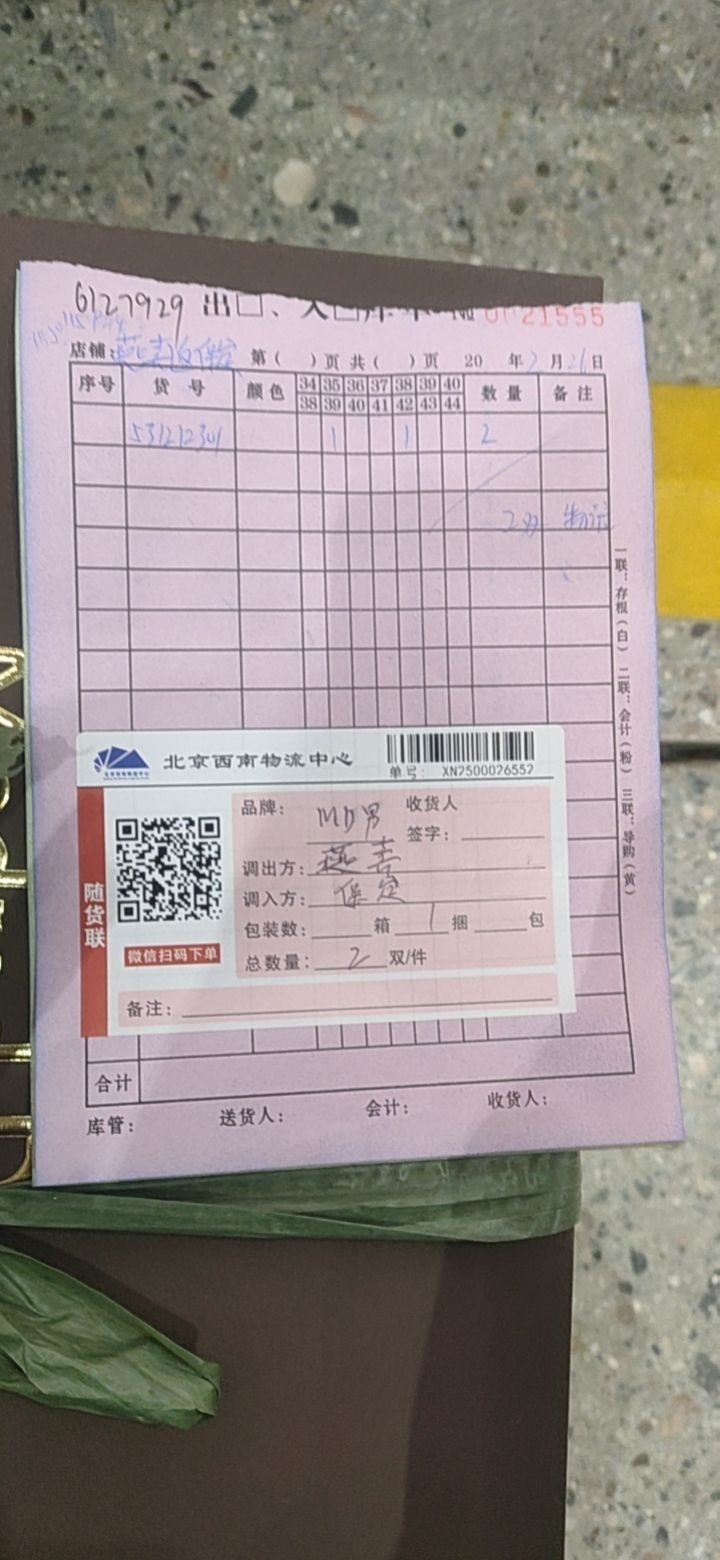 6127929 出□、入□库单 №
店铺:燕莎 第( )页 共( )页 20 年2月26日
序号 货号 颜色 34 35 36 37 38 39 40 数量 备注
38 39 40 41 42 43 44
531212301 1 1 2
2双
一联:存根(白) 二联:会计(粉) 三联:导购(黄)
北京西南物流中心
单号: XN2500026552
随货联
微信扫码下单
品牌: MD男 收货人
签字:
调出方: 燕莎
调入方: 保定
包装数: 箱 1 捆 包
总数量: 2 双/件
备注:
合计
库管: 送货人: 会计: 收货人: